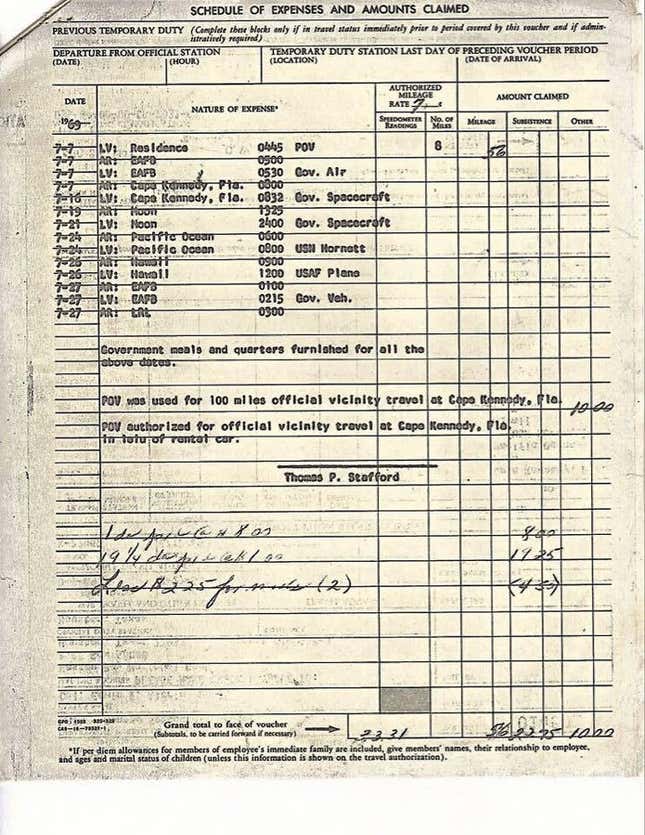 SCHEDULE OF EXPENSES AND AMOUNTS CLAIMED
PREVIOUS TEMPORARY DUTY (Complete these blocks only if in travel status immediately prior to period covered by this voucher and if admin-
istratively required)
DEPARTURE FROM OFFICIAL STATION TEMPORARY DUTY STATION LAST DAY OF PRECEDING VOUCHER PERIOD
(DATE) (HOUR) (LOCATION) (DATE OF ARRIVAL)
DATE NATURE OF EXPENSE* AUTHORIZED MILEAGE RATE 7 ¢ AMOUNT CLAIMED
1969 SPEEDOMETER READINGS NO. OF MILES MILEAGE SUBSISTENCE OTHER
7-7 LV: Residence 0445 POV 8 56
7-7 AR: EAFB 0500
7-7 LV: EAFB 0530 Gov. Air
7-7 AR: Cape Kennedy, Fla. 0800
7-16 LV: Cape Kennedy, Fla. 0832 Gov. Spacecraft
7-19 AR: Moon 1325
7-21 LV: Moon 2400 Gov. Spacecraft
7-24 AR: Pacific Ocean 0600
7-24 LV: Pacific Ocean 0800 USN Hornett
7-26 AR: Hawaii 0900
7-26 LV: Hawaii 1200 USAF Plane
7-27 AR: EAFB 0100
7-27 LV: EAFB 0215 Gov. Veh.
7-27 AR: LRL 0300
Government meals and quarters furnished for all the
above dates.
POV was used for 100 miles official vicinity travel at Cape Kennedy, Fla. 10.00
POV authorized for official vicinity travel at Cape Kennedy, Fla.
in leiu of rental car.
Thomas P. Stafford
1 @ 8 00 8 00
19 1/4 @ 1 00 19 25
Less $2.25 for meals (2) (4 50)
Grand total to face of voucher
(Subtotals, to be carried forward if necessary) 33.31 56 22 75 10.00
*If per diem allowances for members of employee's immediate family are included, give members' names, their relationship to employee,
and ages and marital status of children (unless this information is shown on the travel authorization).